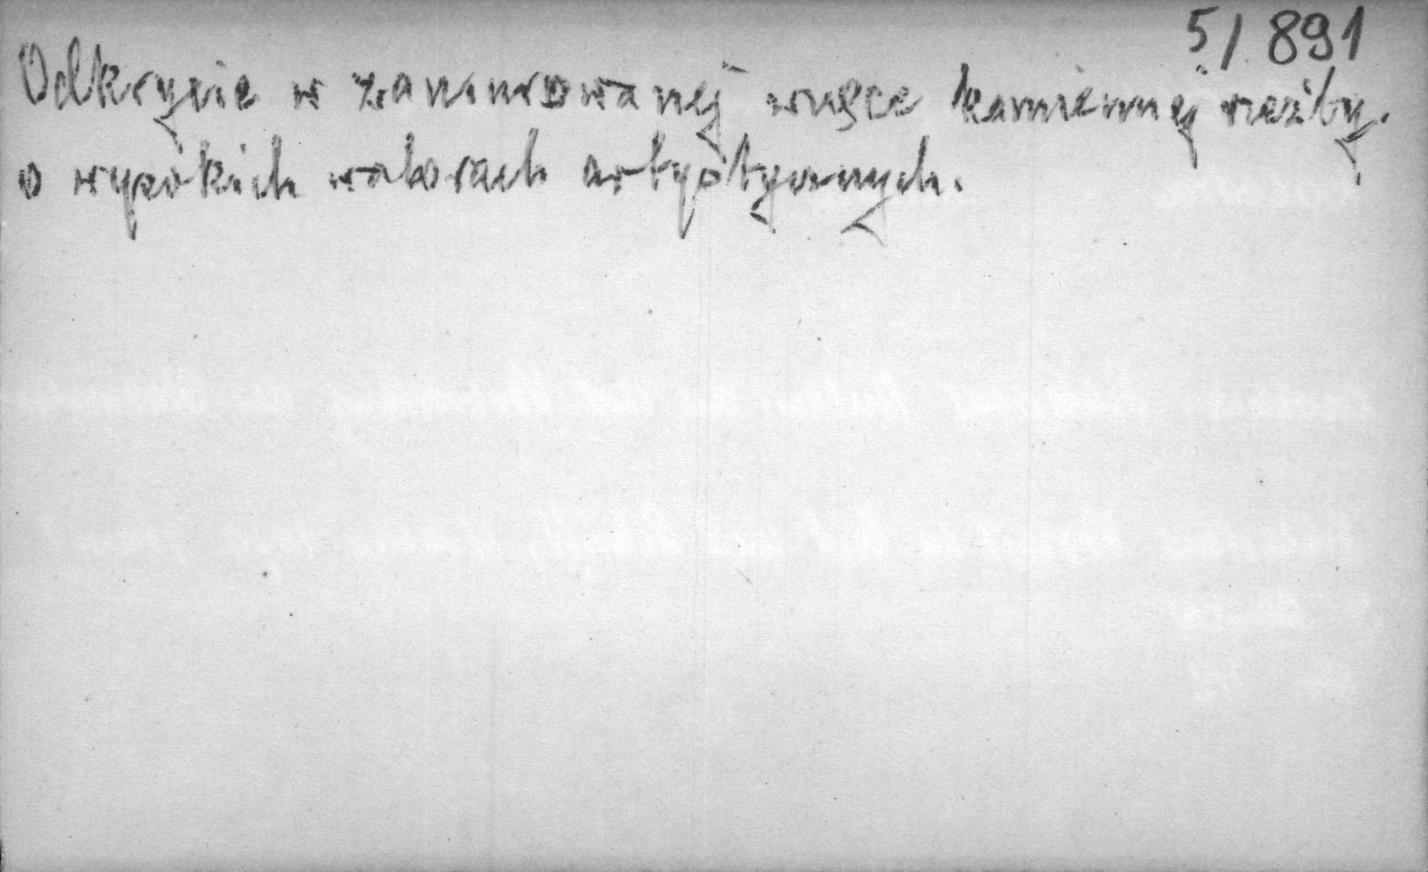 5/891
Odkrycie w zamurowanej wnęce kamiennej rzeźby
o wysokich walorach artystycznych.